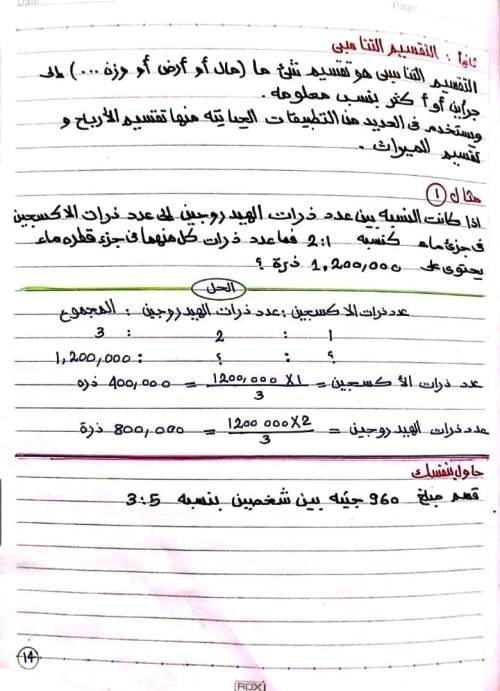 Date:
Page:
ثانيا : التقسيم التناسبى
التقسيم التناسبى هو تقسيم شئ ما (مال أو أرض أو وزن ...) الى
جزأين أو أكثر بنسب معلومه .
ويستخدم فى العديد من التطبيقات الحياتيه منها تقسيم الأربح و
تقسيم الميراث .
مثال 1
اذا كانت النسبه بين عدد ذرات الهيدروجين الى عدد ذرات الاكسجين
فى جزئ ماء كنسبه 2:1 فما عدد ذرات كل منهما فى جزء قطره ماء
يحتوى على 1,200,000 ذرة ؟
الحل
عدد ذرات الاكسجين : عدد ذرات الهيدروجين : المجموع
1 : 2 : 3
؟ : ؟ : 1,200,000
عدد ذرات الأكسجين = 1200,000 X 1 / 3 = 400,000 ذره
عدد ذرات الهيدروجين = 1200 000 X 2 / 3 = 800,000 ذرة
حاول بنفسك
قسم مبلغ 960 جنيه بين شخصين بنسبه 3:5
14
ROX